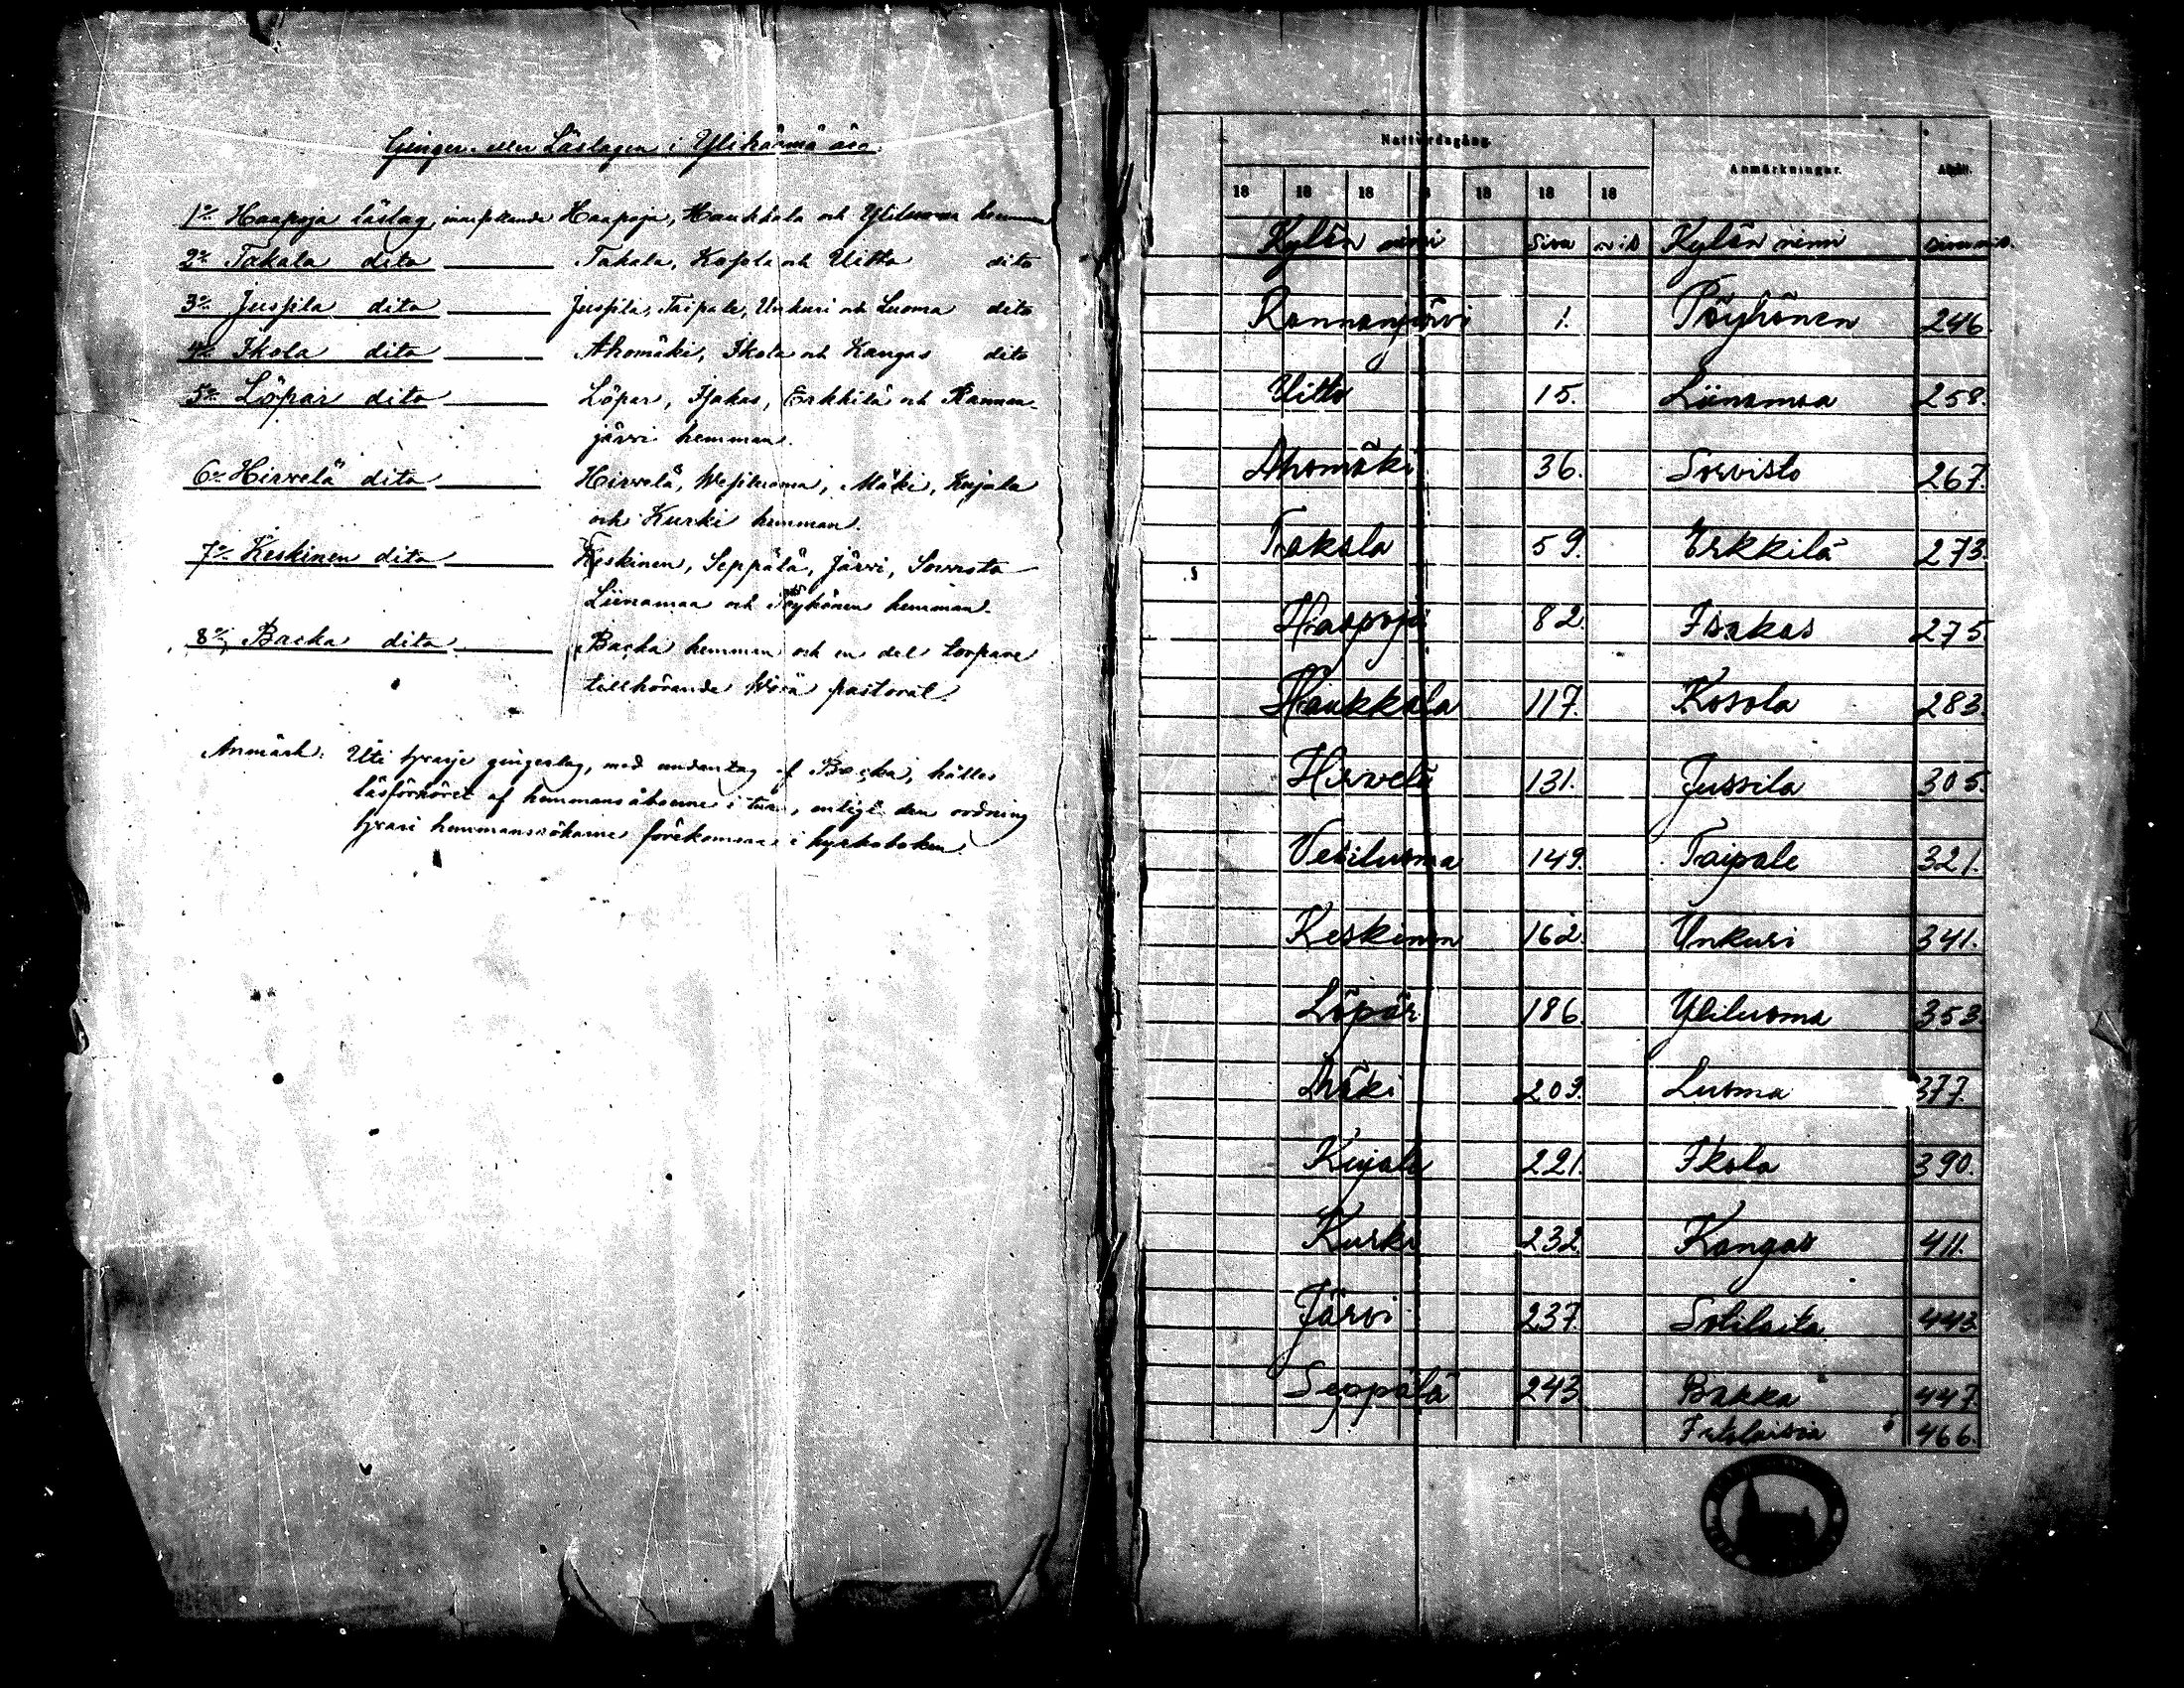 Gingen eller Läslagen i Ylihärmä äro.
1o Haapoja läslag, innefattande Haapoja, Haukkala och Yliluoma hemman
2o Takala dito Takala, Kosola och Uitto dito
3o Jussila dito Jussila, Taipale, Unkuri och Luoma dito
4o Ikola dito Ahomäki, Ikola och Kangas dito
5o Löpar dito Löpar, Isakas, Erkkilä och Rannan-
järvi hemman.
6o Hirvelä dito Hirvelä, Wesiluoma, Mäki, Kujala
och Kurki hemman.
7o Keskinen dito Keskinen, Seppälä, Järvi, Sorvisto
Liinamaa och Pöyhönen hemman.
8o Backa dito Backa hemman och en del torpare
tillhörande Wörå pastorat.
Anmärk. Uti hvarje gingerlag, med undantag af Backa, hålles
läsförhöret af hemmansåboerne i tur, enligt den ordning
hvari hemmansrökarne förekomma i kyrkoboken.
Nattvardsgång. Anmärkningar.
18 18 18 18 18 18
Kylän nimi Sivu Kylän nimi
Rannanjärvi 1. Pöyhönen 246.
Uitto 15. Liinamaa 258.
Ahomäki 36. Sorvisto 267.
Takala 59. Erkkilä 273.
Haapoja 82. Isakas 275
Haukkala 117. Kosola 283.
Hirvelä 131. Jussila 305.
Vesiluoma 149. Taipale 321.
Keskinen 162. Unkuri 341.
Löpär 186. Yliluoma 353.
Mäki 209. Luoma 377.
Kujala 221. Ikola 390.
Kurki 232. Kangas 411.
Järvi 237. Sotilaita 443
Seppälä 243 Bakka 447.
Itelaisia 466.